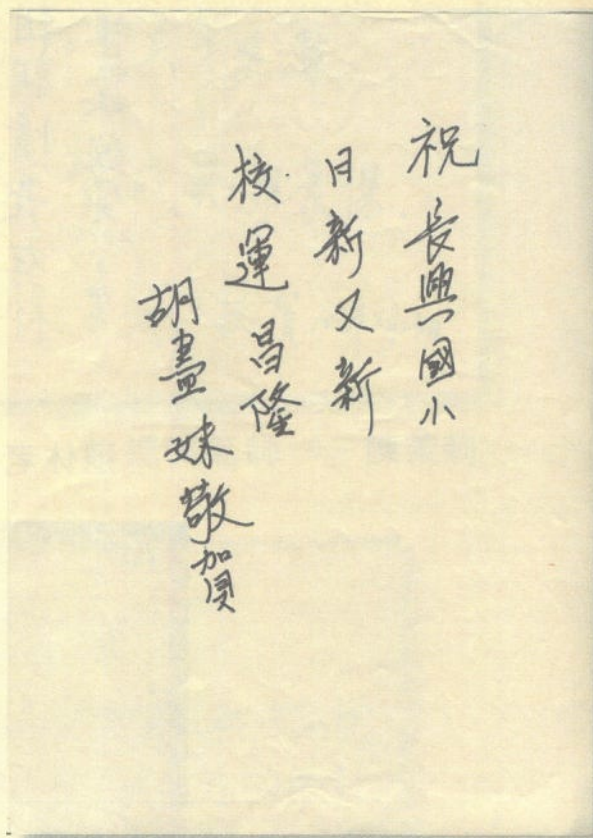 祝長興國小
日新又新
校運昌隆
胡畫妹敬賀